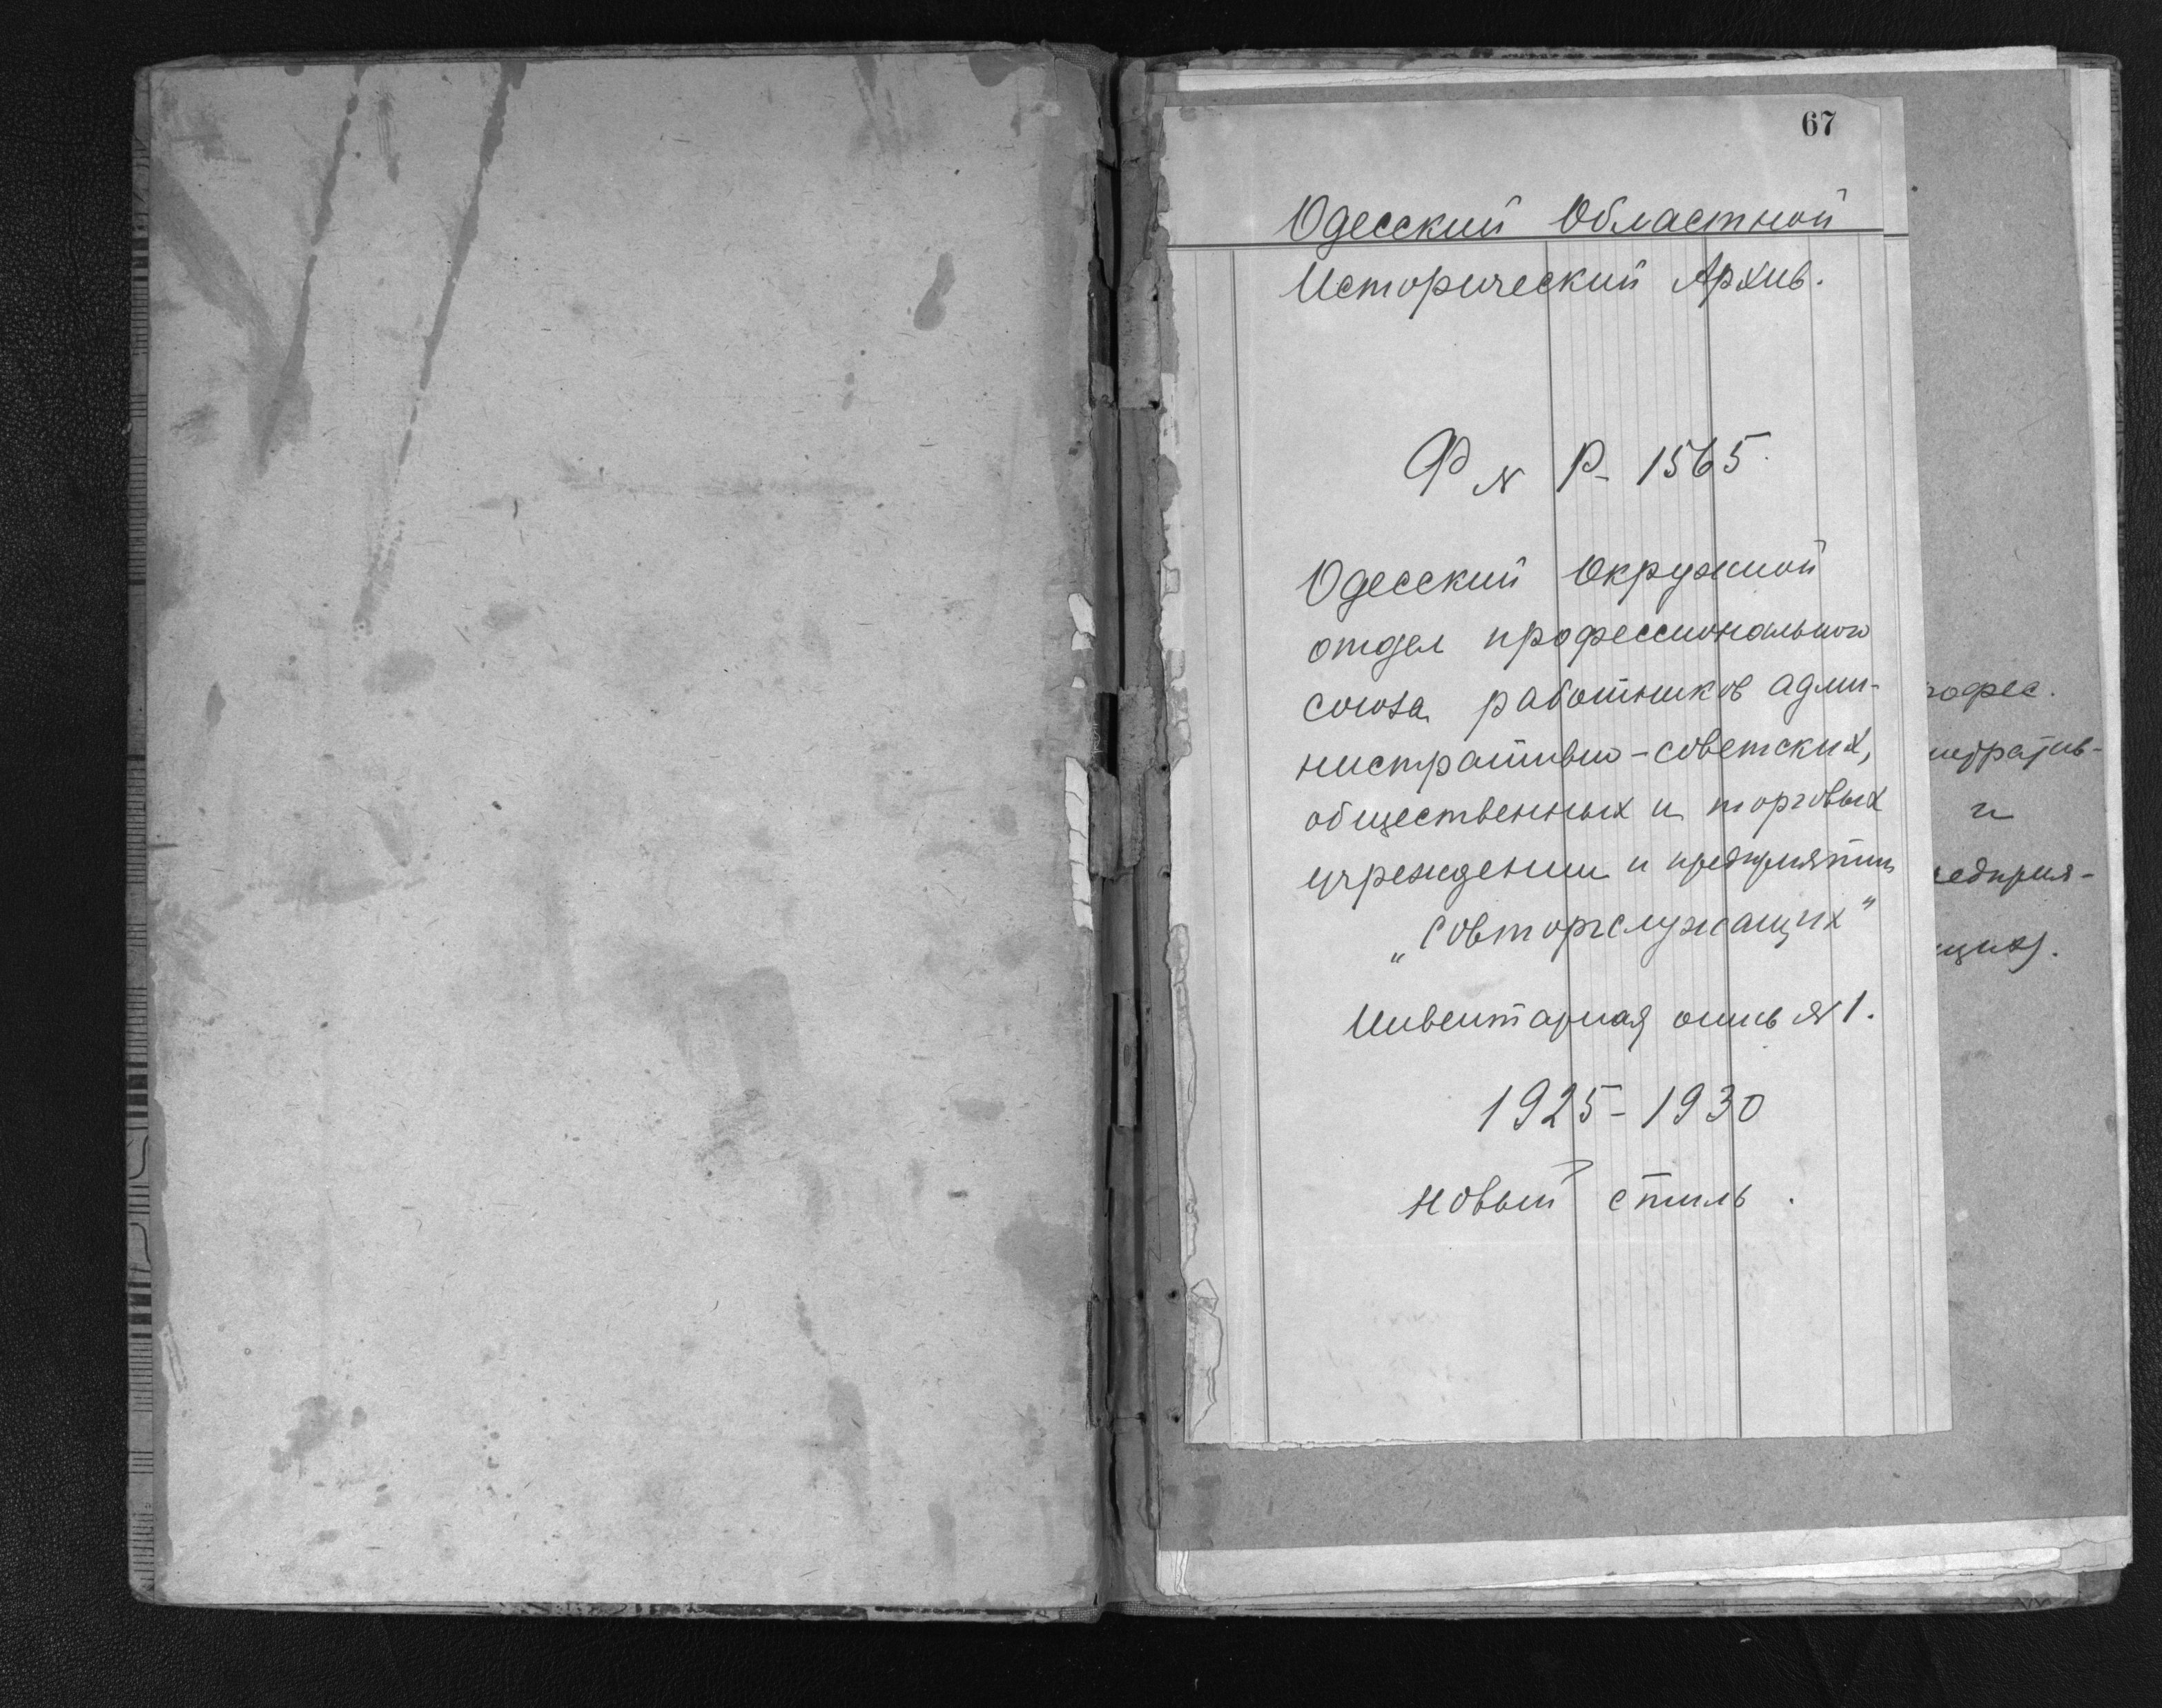 67
Одесский Областной
Исторический Архив.
Ф № Р-1565
Одесский Окружной
отдел профессионального
союза работников адми-
нистративно-советских,
общественных и торговых
учреждении и предприятии
„Совторгслужащих"
Инвентарная опись № 1.
1925-1930
новый стиль.
рофес.
и
редприя-
щих).